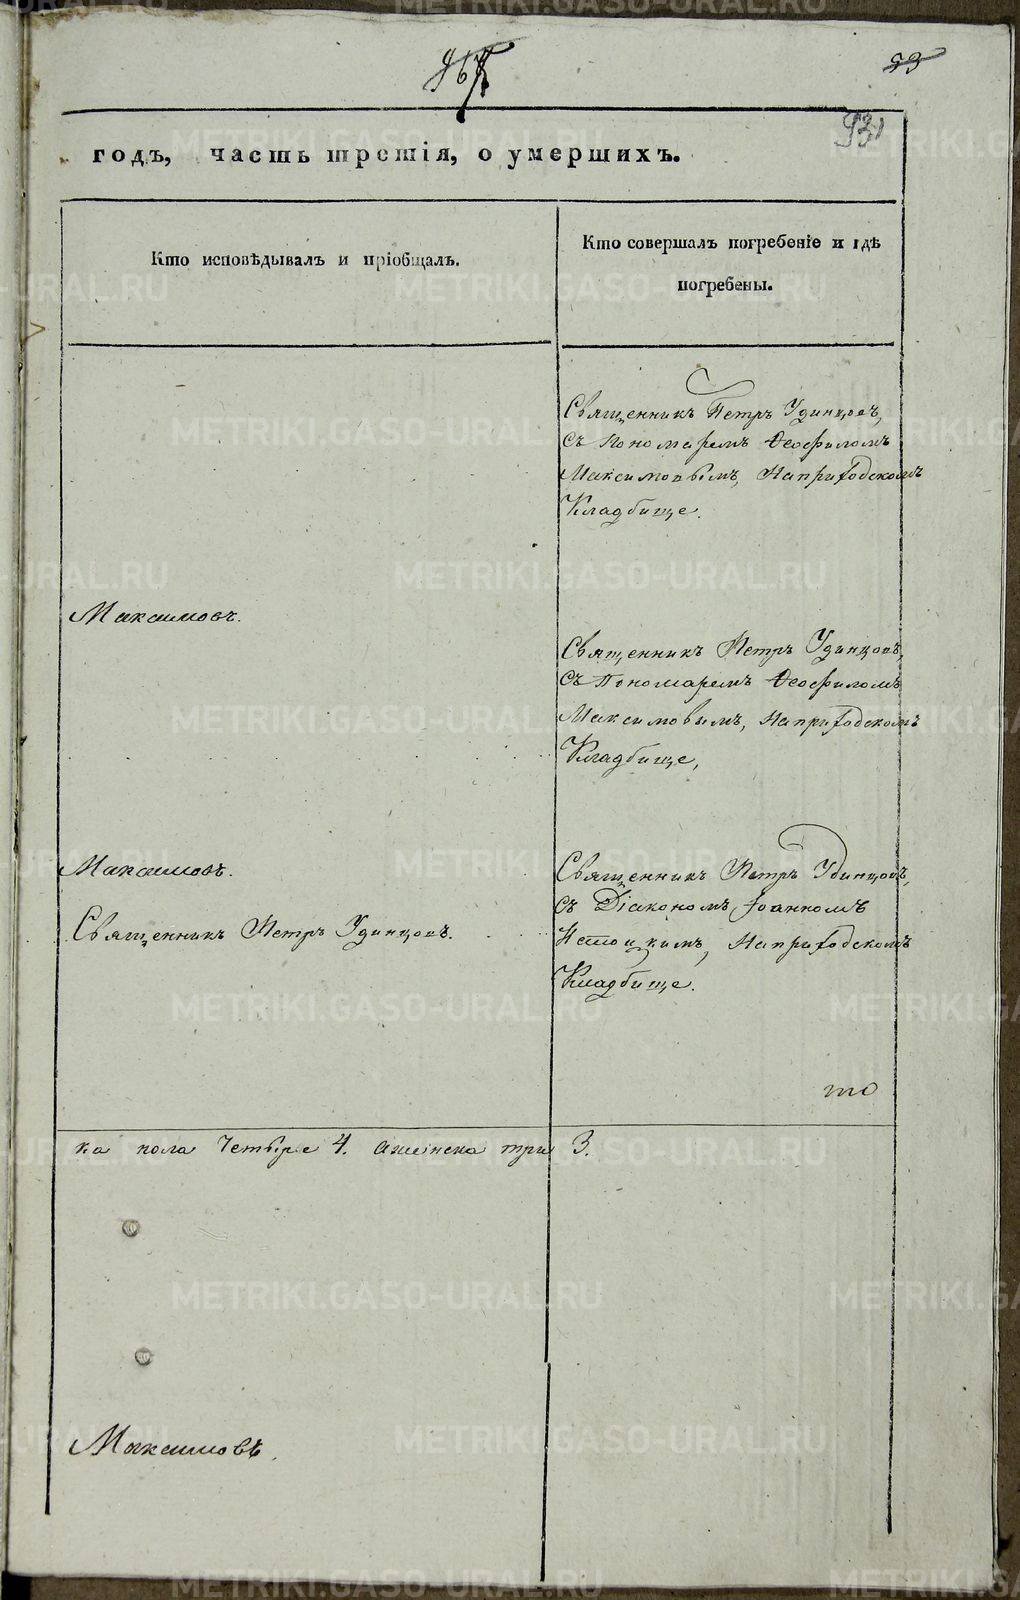 93
годъ, часть третія, о умершихъ.
Кто исповѣдывалъ и пріобщалъ.
Кто совершалъ погребеніе и гдѣ
погребены.
Священникъ Петръ Удинцовъ,
съ пономаремъ Ѳеофиломъ
Максимовымъ, На приходскомъ
Кладбище.
Максимовъ.
Священникъ Петръ Удинцовъ,
съ пономаремъ Ѳеофиломъ
Максимовымъ, на приходскомъ
Кладбище,
Максимовъ.
Священникъ Петръ Удинцовъ.
Священникъ Петръ Удинцовъ,
съ Діакономъ Іоанномъ
На приходскомъ
Кладбище.
то
ка пола четыре 4. а женска три 3.
Максимовъ.
METRIKI.GASO-URAL.RU